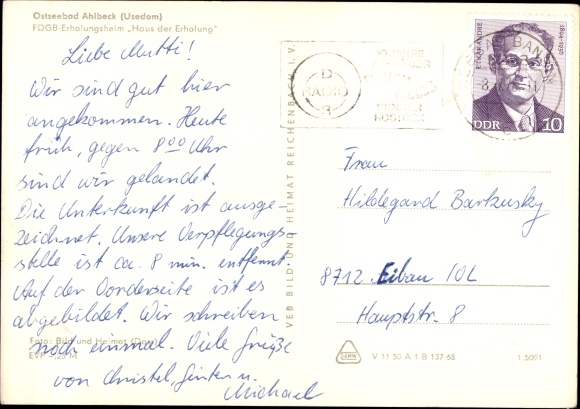 Ostseebad Ahlbeck (Usedom)
FDGB-Erholungsheim „Haus der Erholung"
Liebe Mutti!
Wir sind gut hier
angekommen. Heute
früh, gegen 8⁰⁰ Uhr
sind wir gelandet.
Die Unterkunft ist ausge-
zeichnet. Unsere Verpflegungs-
stelle ist ca. 8 min. entfernt.
Auf der Vorderseite ist es
abgebildet. Wir schreiben
noch einmal. Viele Grüße
von Christel, Günter u.
Michael
Foto: Bild und Heimat (Darr)
EVP
VEB BILD UND HEIMAT REICHENBACH I. V.
D
RADIO
R
10 JAHRE
ROSTOCK
ETKAR ANDRÉ
1894-1936
DDR 10
Frau
Hildegard Barkusky
8712 Eibau /OL
Hauptstr. 8
DAMW
V 11 50 A 1 B 137/68
1.5091